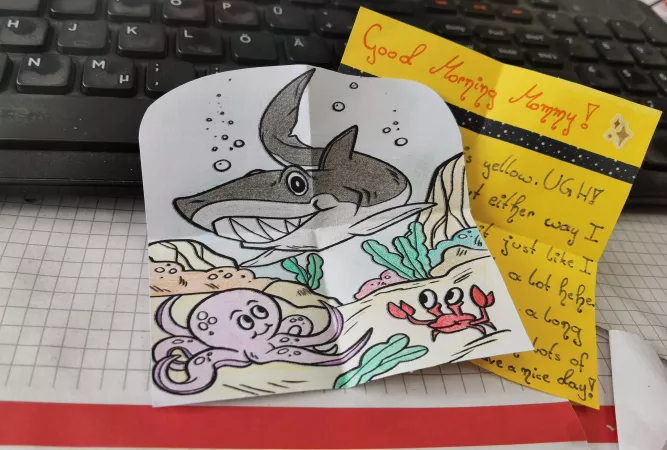 Good Morning Mommy!
is yellow. UGH!
either way I
just like I
a lot hehe.
a long
lots of
have a nice day!
H J K L Ö
N M µ